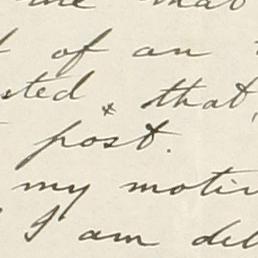 that
of an
sted x that,
post.
my motiv
I am del